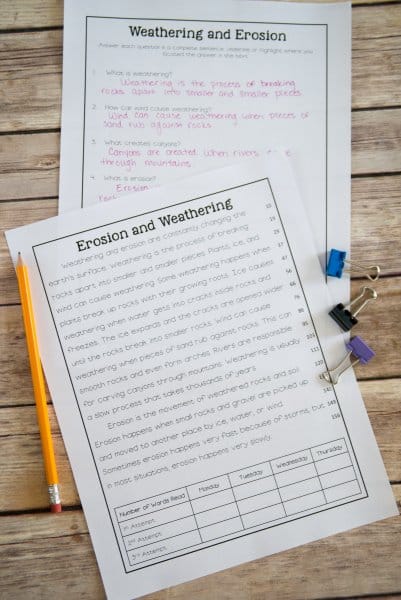 Weathering and Erosion
Answer each question in a complete sentence. Underline or highlight where you
located the answer in the text.
1. What is weathering?
Weathering is the process of breaking
rocks apart into smaller and smaller pieces.
2. How can wind cause weathering?
Wind can cause weathering when pieces of
sand rub against rocks.
3. What creates canyons?
Canyons are created when rivers
through mountains.
4. What is erosion?
Erosion
Erosion and Weathering
Weathering and erosion are constantly changing the
earth's surface. Weathering is the process of breaking
rocks apart into smaller and smaller pieces. Plants, ice, and
wind can cause weathering. Some weathering happens when
plants break up rocks with their growing roots. Ice causes
weathering when water gets into cracks inside rocks and
freezes. The ice expands and the cracks are opened wider
until the rocks break into smaller rocks. Wind can cause
weathering when pieces of sand rub against rocks. This can
smooth rocks and even form arches. Rivers are responsible
for carving canyons through mountains. Weathering is usually
a slow process that takes thousands of years.
Erosion is the movement of weathered rocks and soil.
Erosion happens when small rocks and gravel are picked up
and moved to another place by ice, water, or wind.
Sometimes erosion happens very fast because of storms, but
in most situations, erosion happens very slowly.
Number of Words Read Monday Tuesday Wednesday Thursday
1st Attempt
2nd Attempt
3rd Attempt